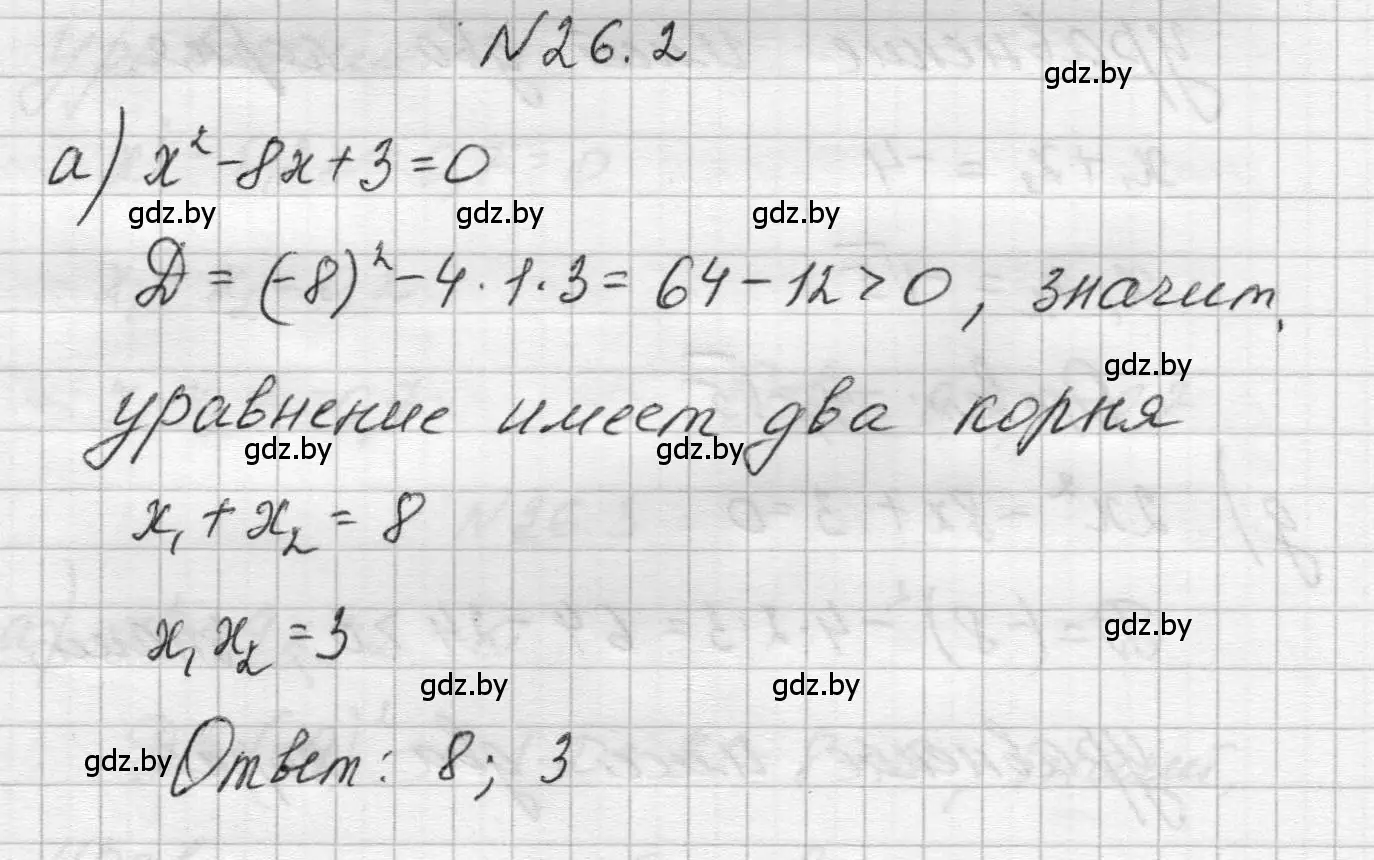 N 26.2
gdz.by
а) x² - 8x + 3 = 0
gdz.by gdz.by gdz.by
D = (-8)² - 4 · 1 · 3 = 64 - 12 > 0, значит,
gdz.by
уравнение имеет два корня
gdz.by gdz.by
x₁ + x₂ = 8
x₁ x₂ = 3
gdz.by
gdz.by gdz.by
gdz.by Ответ: 8; 3